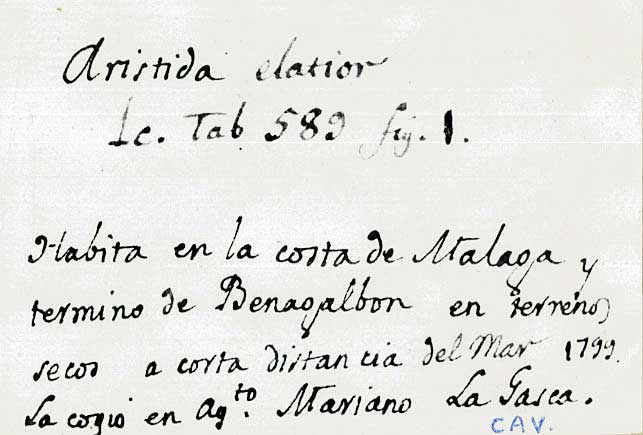 Aristida elatior
Ic. Tab 589 fig. 1.
Habita en la costa de Malaga y
termino de Benagalbon en terrenos
secos a corta distancia del Mar 1799.
La cogio en Ag.to Mariano La Gasca.
CAV.